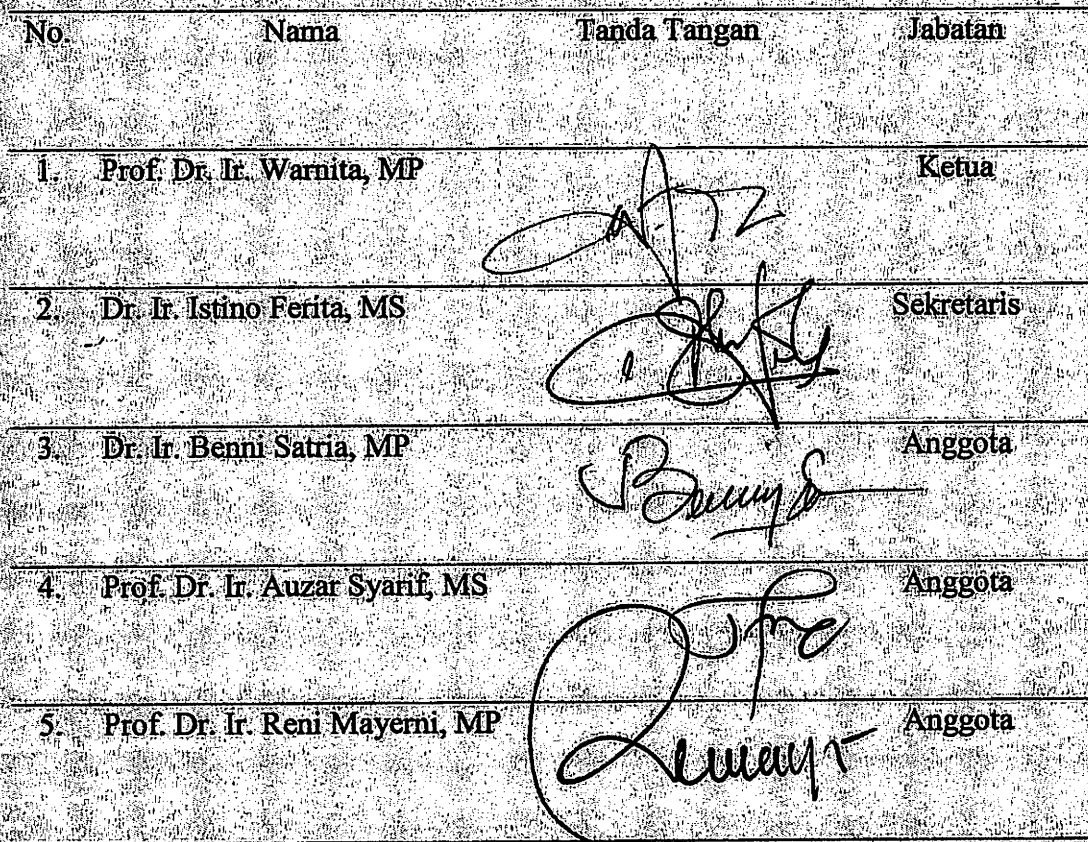 No. Nama Tanda Tangan Jabatan
1. Prof. Dr. Ir. Warnita, MP Ketua
2. Dr. Ir. Istino Ferita, MS Sekretaris
3. Dr. Ir. Benni Satria, MP Anggota
4. Prof. Dr. Ir. Auzar Syarif, MS Anggota
5. Prof. Dr. Ir. Reni Mayerni, MP Anggota